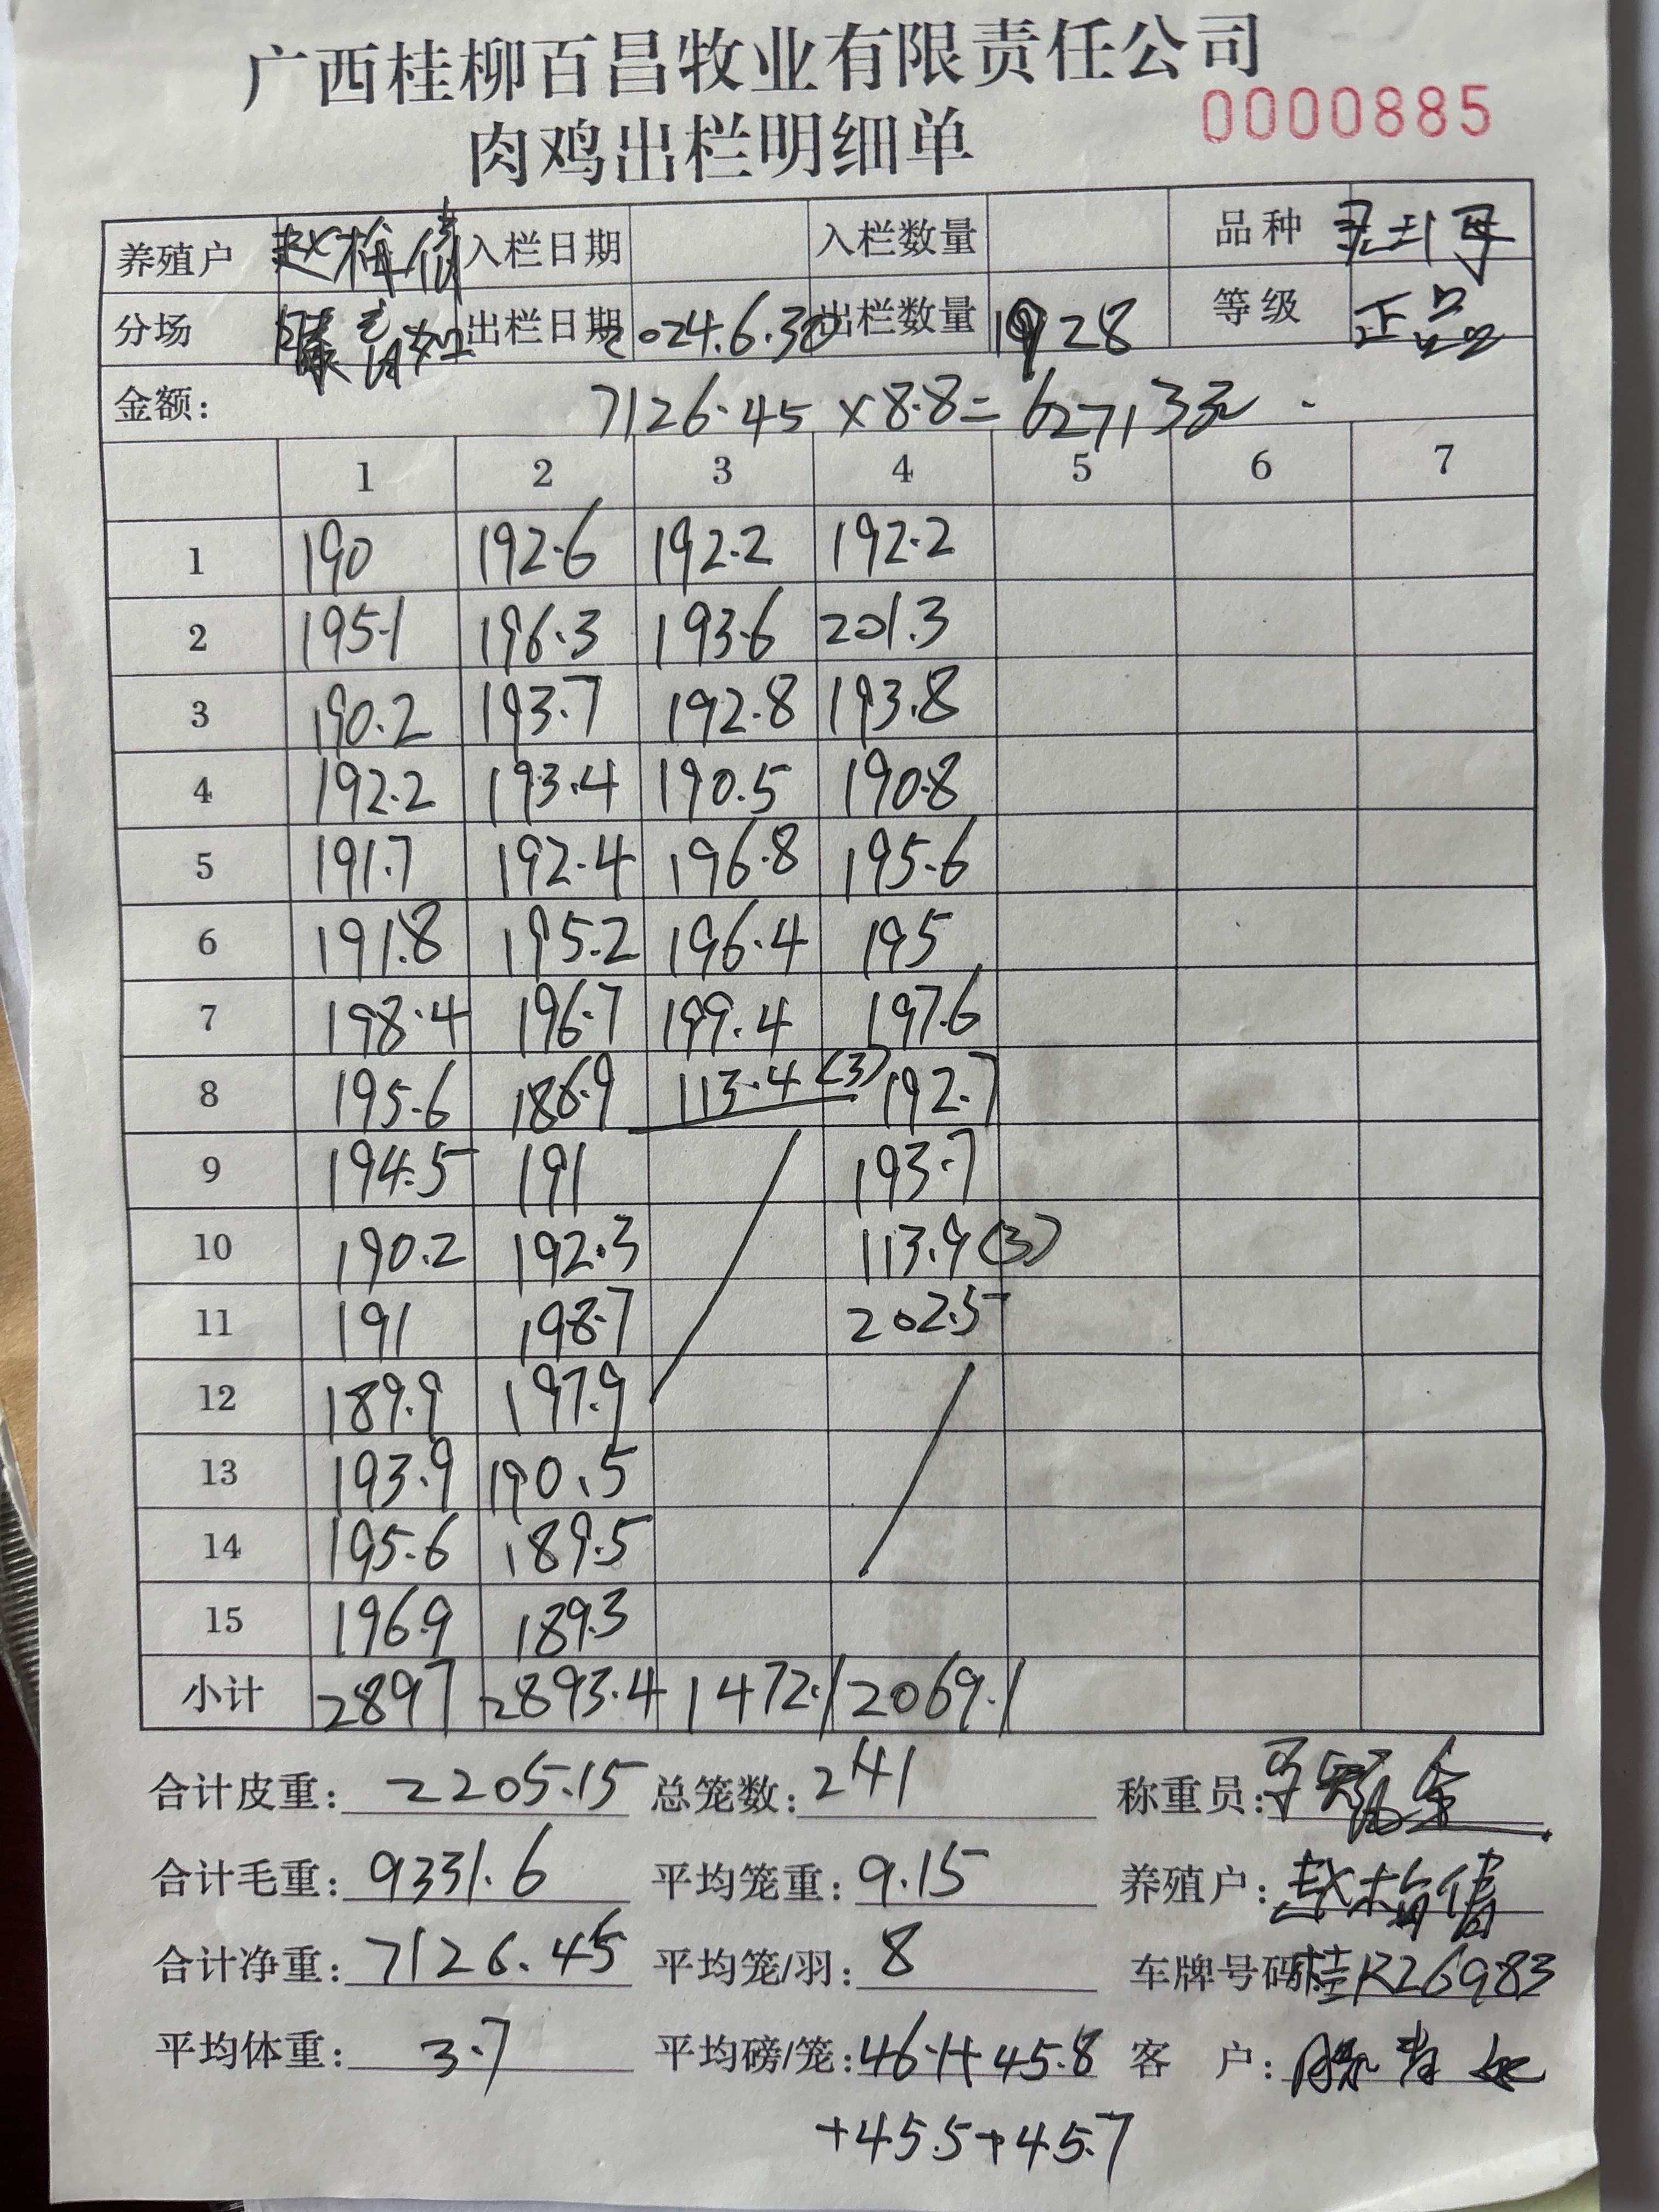 广西桂柳百昌牧业有限责任公司
肉鸡出栏明细单 0000885
养殖户 入栏日期 入栏数量 品种
分场 出栏日期 2024.6.30 出栏数量 1928 等级 正品
金额: 7126.45 ×8.8= 62713元
1 2 3 4 5 6 7
1 190 192.6 192.2 192.2
2 195.1 196.3 193.6 201.3
3 190.2 193.7 192.8 193.8
4 192.2 193.4 190.5 190.8
5 191.7 192.4 196.8 195.6
6 191.8 195.2 196.4 195
7 198.4 196.7 199.4 197.6
8 195.6 186.9 113.4 (3) 192.7
9 194.5 191 193.7
10 190.2 192.3 113.9 (3)
11 191 198.7 202.5
12 189.9 197.9
13 193.9 190.5
14 195.6 189.5
15 196.9 189.3
小计 2897 2893.4 1472.1 2069.1
合计皮重: 2205.15 总笼数: 241 称重员:
合计毛重: 9331.6 平均笼重: 9.15 养殖户:
合计净重: 7126.45 平均笼/羽: 8 车牌号码: 桂R26983
平均体重: 3.7 平均磅/笼: 46.1+45.8 客 户:
+45.5+45.7